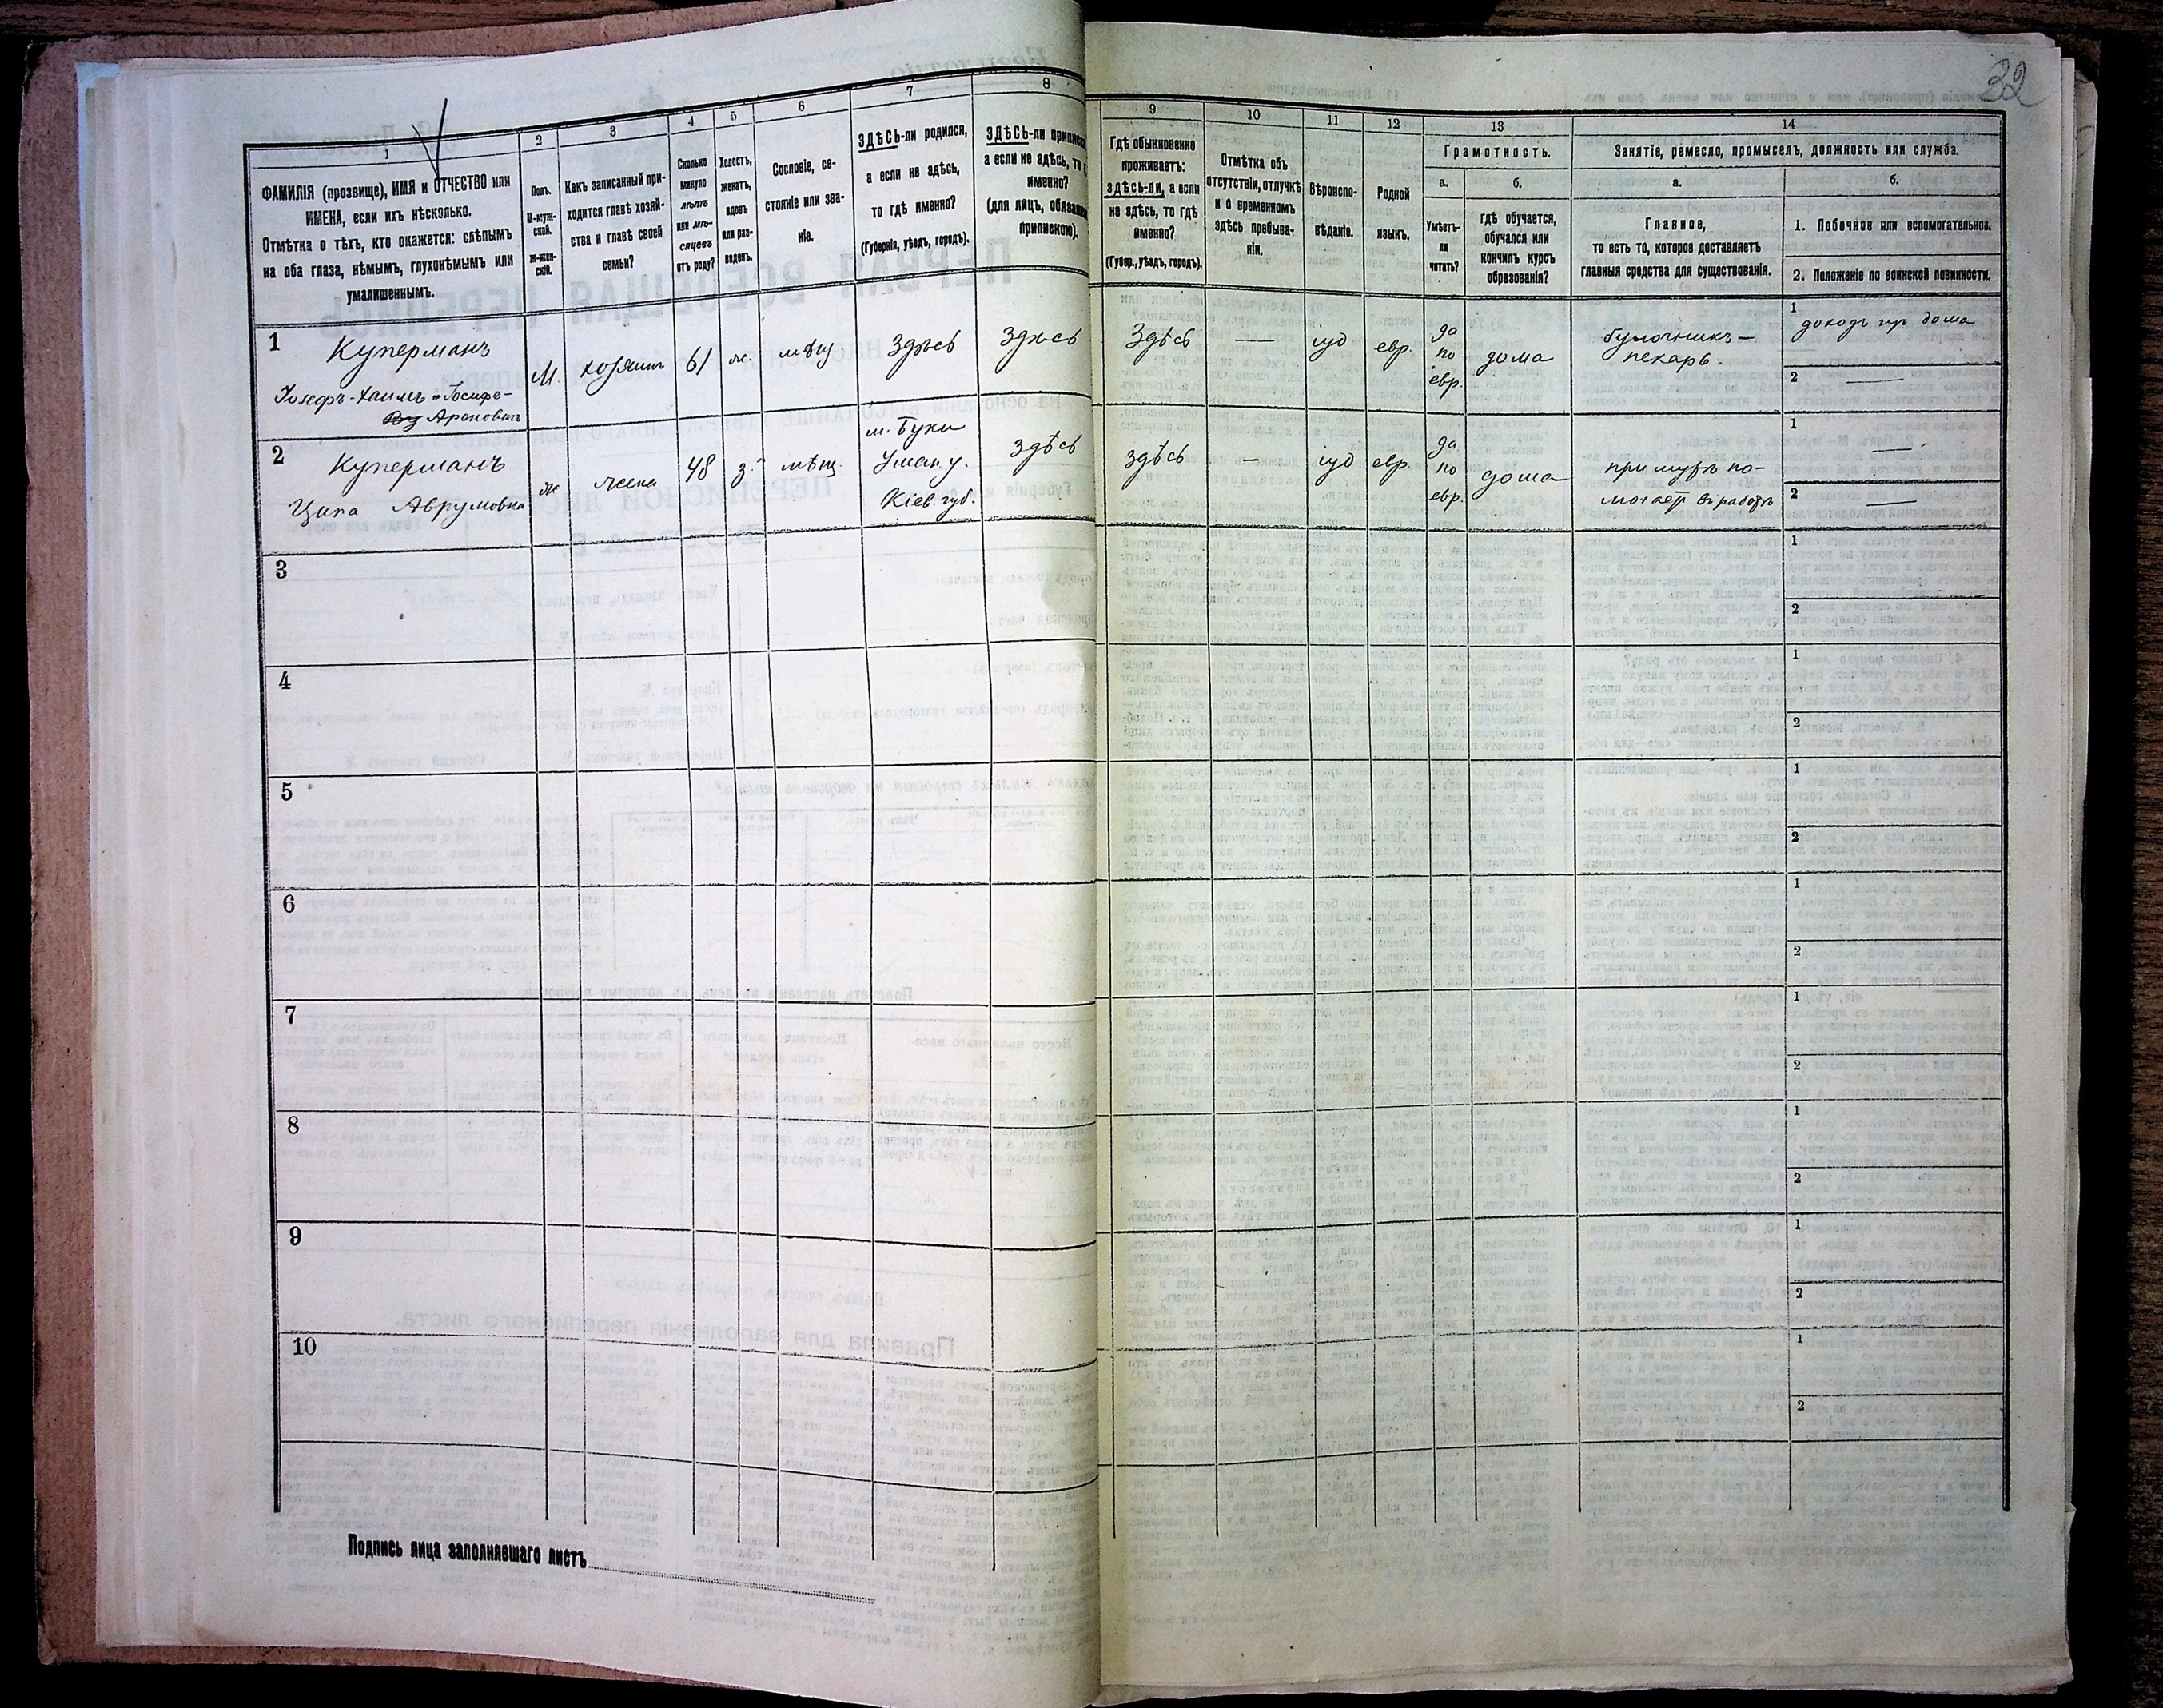 32
1
2
3
4
5
6
7
8
9
10
11
12
13
14
ФАМИЛІЯ (прозвище), ИМЯ и ОТЧЕСТВО или
ИМЕНА, если ихъ нѣсколько.
Отмѣтка о тѣхъ, кто окажется: слѣпымъ
на оба глаза, нѣмымъ, глухонѣмымъ или
умалишеннымъ.
Полъ.
М-муж-
ской.
ж-жен-
скій.
Какъ записанный при-
ходится главѣ хозяй-
ства и главѣ своей
семьи?
Сколько
минуло
лѣтъ
или мѣ-
сяцевъ
отъ роду?
Холостъ,
женатъ,
вдовъ
или раз-
веденъ.
Сословіе, со-
стояніе или зва-
ніе.
ЗДѢСЬ-ли родился,
а если не здѣсь,
то гдѣ именно?
(Губернія, уѣздъ, городъ).
ЗДѢСЬ-ли
а если не здѣсь, то
именно?
(для лицъ,
припискою).
Гдѣ обыкновенно
проживаетъ:
здѣсь-ли, а если
не здѣсь, то гдѣ
именно?
(Губер., уѣздъ, городъ).
Отмѣтка объ
отсутствіи, отлучкѣ
и о временномъ
здѣсь пребыва-
ніи.
Вѣроиспо-
вѣданіе.
Родной
языкъ.
Грамотность.
а.
б.
Умѣетъ-
ли
читать?
гдѣ обучается,
обучался или
кончилъ курсъ
образованія?
Занятіе, ремесло, промыселъ, должность или служба.
а.
б.
Главное,
то есть то, которое доставляетъ
главныя средства для существованія.
1. Побочное или вспомогательное.
2. Положеніе по воинской повинности.
1
Куперманъ
Ароновичъ
М.
хозяинъ
61
ж.
мѣщ.
Здѣсь
Здѣсь
Здѣсь
—
іуд
евр.
да
по
евр.
дома
булочникъ-
пекарь.
1
доходъ дома
2
—
2
Куперманъ
Аврумовна
ж
жена
48
з.
мѣщ.
м. Буки
Уман. у.
Кіев. губ.
здѣсь
здѣсь
—
іуд
евр.
да
по
евр.
дома
при мужѣ по-
могаетъ въ работѣ
1
—
2
—
3
1
2
4
1
2
5
1
2
6
1
2
7
1
2
8
1
2
9
1
2
10
1
2
Подпись лица заполнявшаго листъ